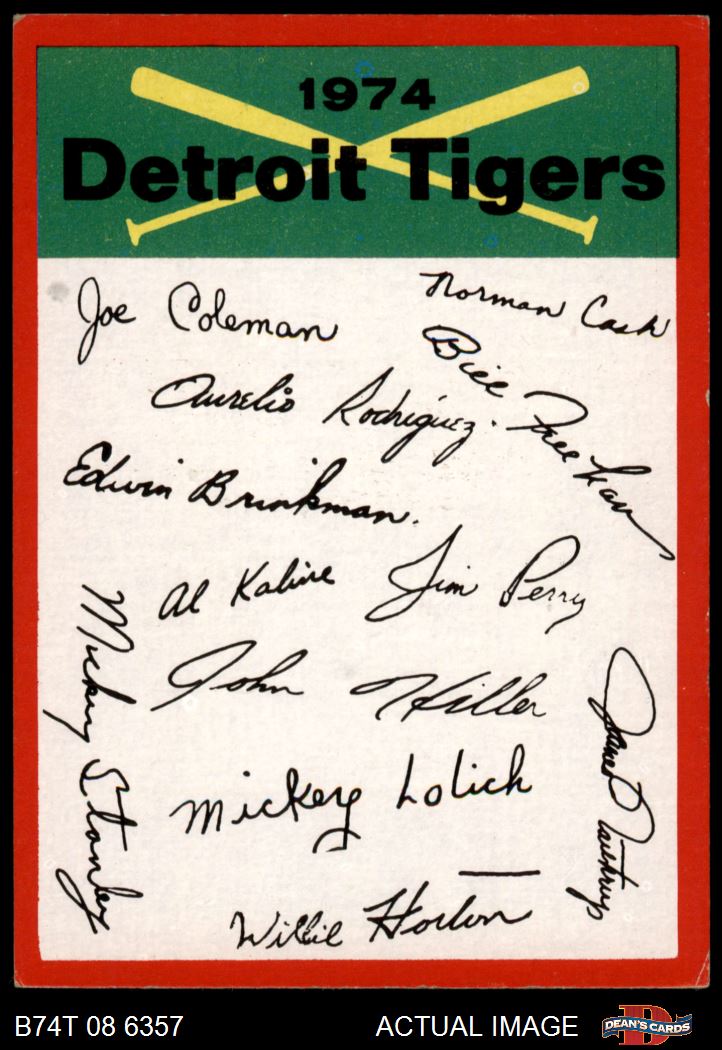 1974
Detroit Tigers
Joe Coleman
Norman Cash
Bill Freehan
Aurelio Rodriguez.
Edwin Brinkman.
Al Kaline
Jim Perry
John Hiller
Mickey Stanley
Mickey Lolich
James Northrup
Willie Horton
B74T 08 6357
ACTUAL IMAGE
D
DEAN'S CARDS